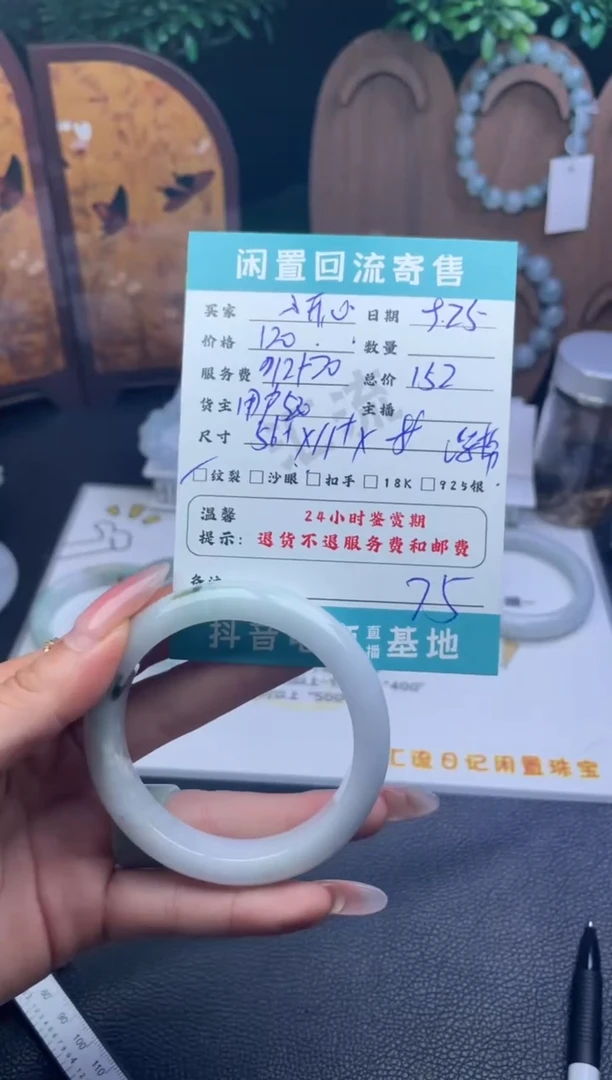 闲置回流寄售
买家 日期 9.25
价格 120 数量
服务费 12+20 总价 152
货主 用户520 主播
尺寸 56+ X 11+ X 8+
纹裂 沙眼 扣手 18K 925银
温馨 24小时鉴赏期
提示：退货不退服务费和邮费
备注 75
抖音 直播 基地
"400"
以上 "500
汇流日记闲置珠宝